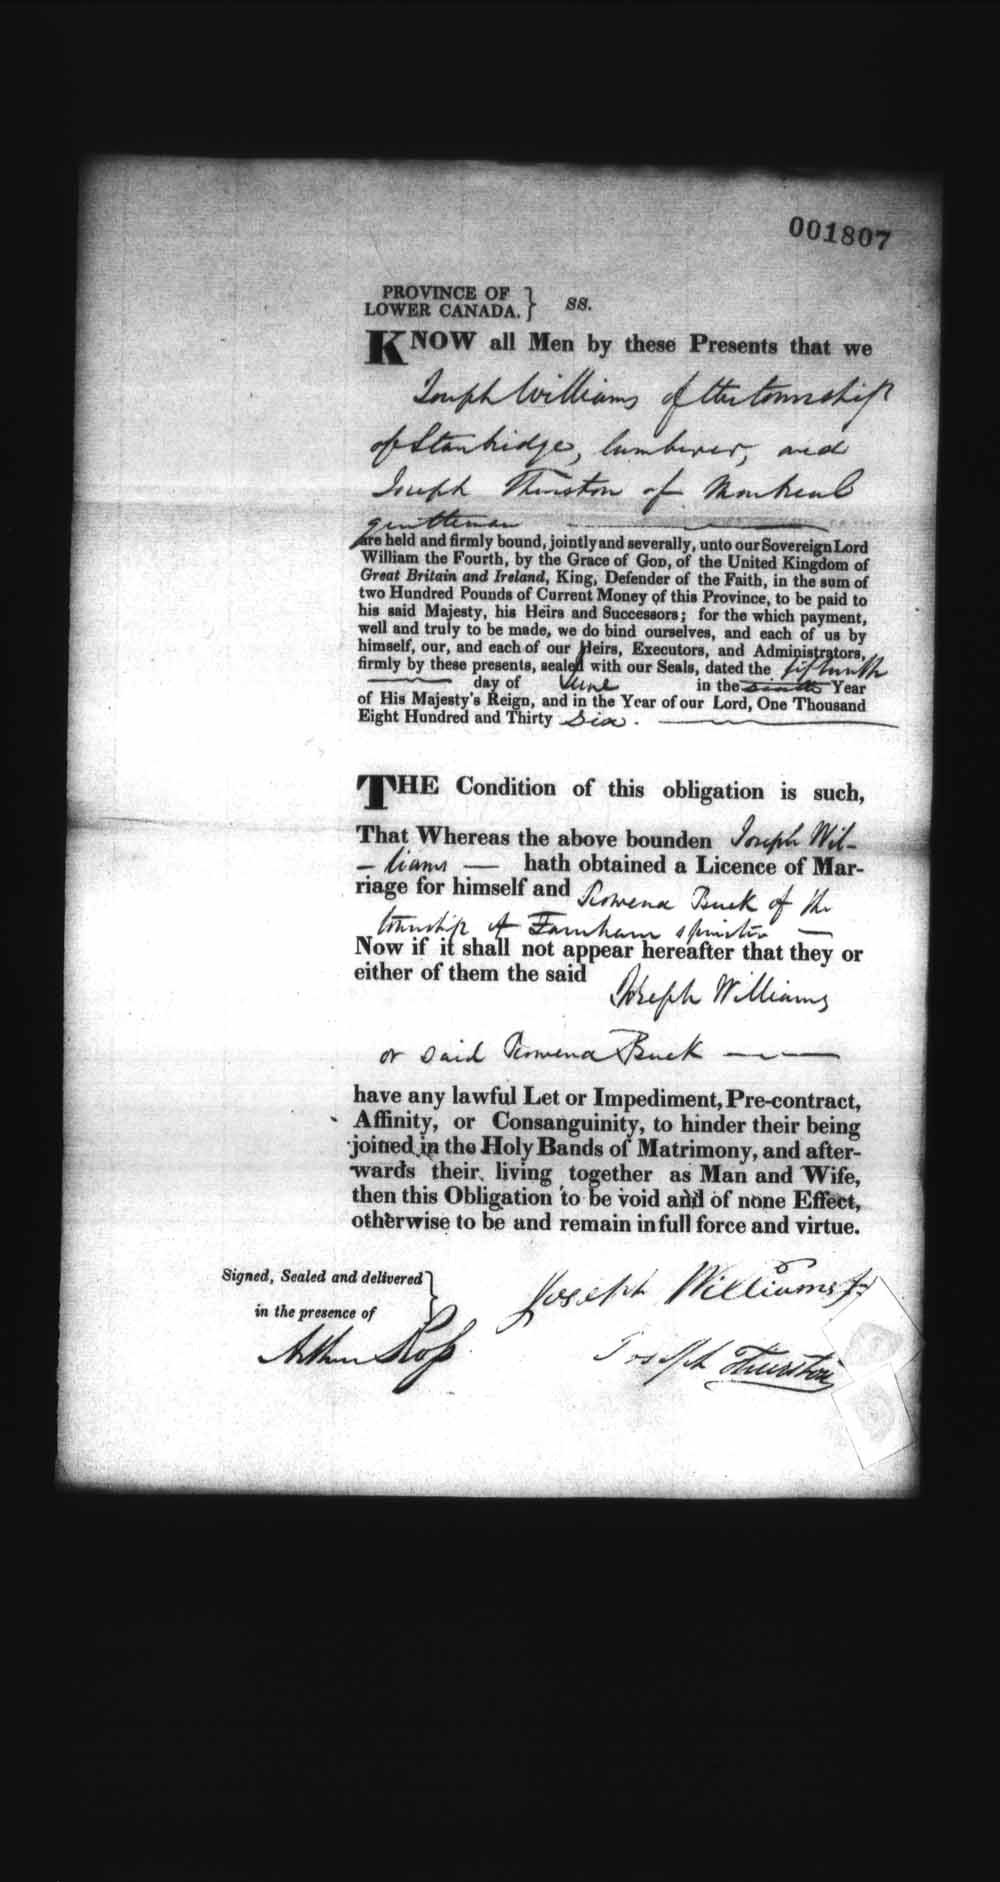 001807
PROVINCE OF
LOWER CANADA. } ss.
KNOW all Men by these Presents that we
Joseph Williams of the township
of Stanbridge, lumberer, and
Joseph Thurston of Montreal
gentleman
are held and firmly bound, jointly and severally, unto our Sovereign Lord
William the Fourth, by the Grace of GOD, of the United Kingdom of
Great Britain and Ireland, King, Defender of the Faith, in the sum of
two Hundred Pounds of Current Money of this Province, to be paid to
his said Majesty, his Heirs and Successors; for the which payment,
well and truly to be made, we do bind ourselves, and each of us by
himself, our, and each of our Heirs, Executors, and Administrators,
firmly by these presents, sealed with our Seals, dated the fifteenth
day of June in the sixth Year
of His Majesty's Reign, and in the Year of our Lord, One Thousand
Eight Hundred and Thirty Six.
THE Condition of this obligation is such,
That Whereas the above bounden Joseph Wil-
- liams — hath obtained a Licence of Mar-
riage for himself and Rowena Buck of the
township of Farnham spinster —
Now if it shall not appear hereafter that they or
either of them the said
Joseph Williams
or said Rowena Buck — — —
have any lawful Let or Impediment, Pre-contract,
Affinity, or Consanguinity, to hinder their being
joined in the Holy Bands of Matrimony, and after-
wards their living together as Man and Wife,
then this Obligation to be void and of none Effect,
otherwise to be and remain in full force and virtue.
Signed, Sealed and delivered }
in the presence of
Joseph Williams Jr
Arthur Ross
Joseph Thurston